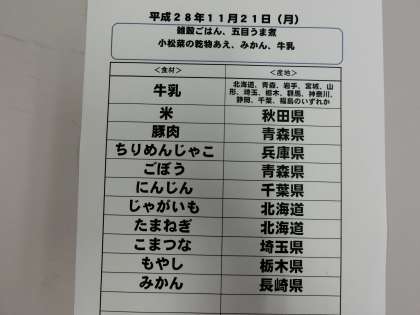 平成28年11月21日（月）
雑穀ごはん、五目うま煮
小松菜の乾物あえ、みかん、牛乳
＜食材＞ ＜産地＞
牛乳 北海道、青森、岩手、宮城、山
形、埼玉、栃木、群馬、神奈川、
静岡、千葉、福島のいずれか
米 秋田県
豚肉 青森県
ちりめんじゃこ 兵庫県
ごぼう 青森県
にんじん 千葉県
じゃがいも 北海道
たまねぎ 北海道
こまつな 埼玉県
もやし 栃木県
みかん 長崎県